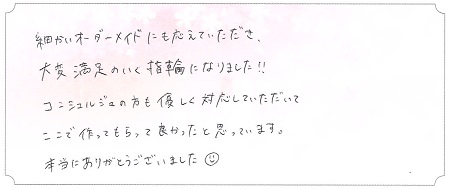 細かいオーダーメイドにも応えていただき、
大変満足のいく指輪になりました!!
コンシェルジュの方も優しく対応していただいて
ここで作ってもらって良かったと思っています。
本当にありがとうございました☺